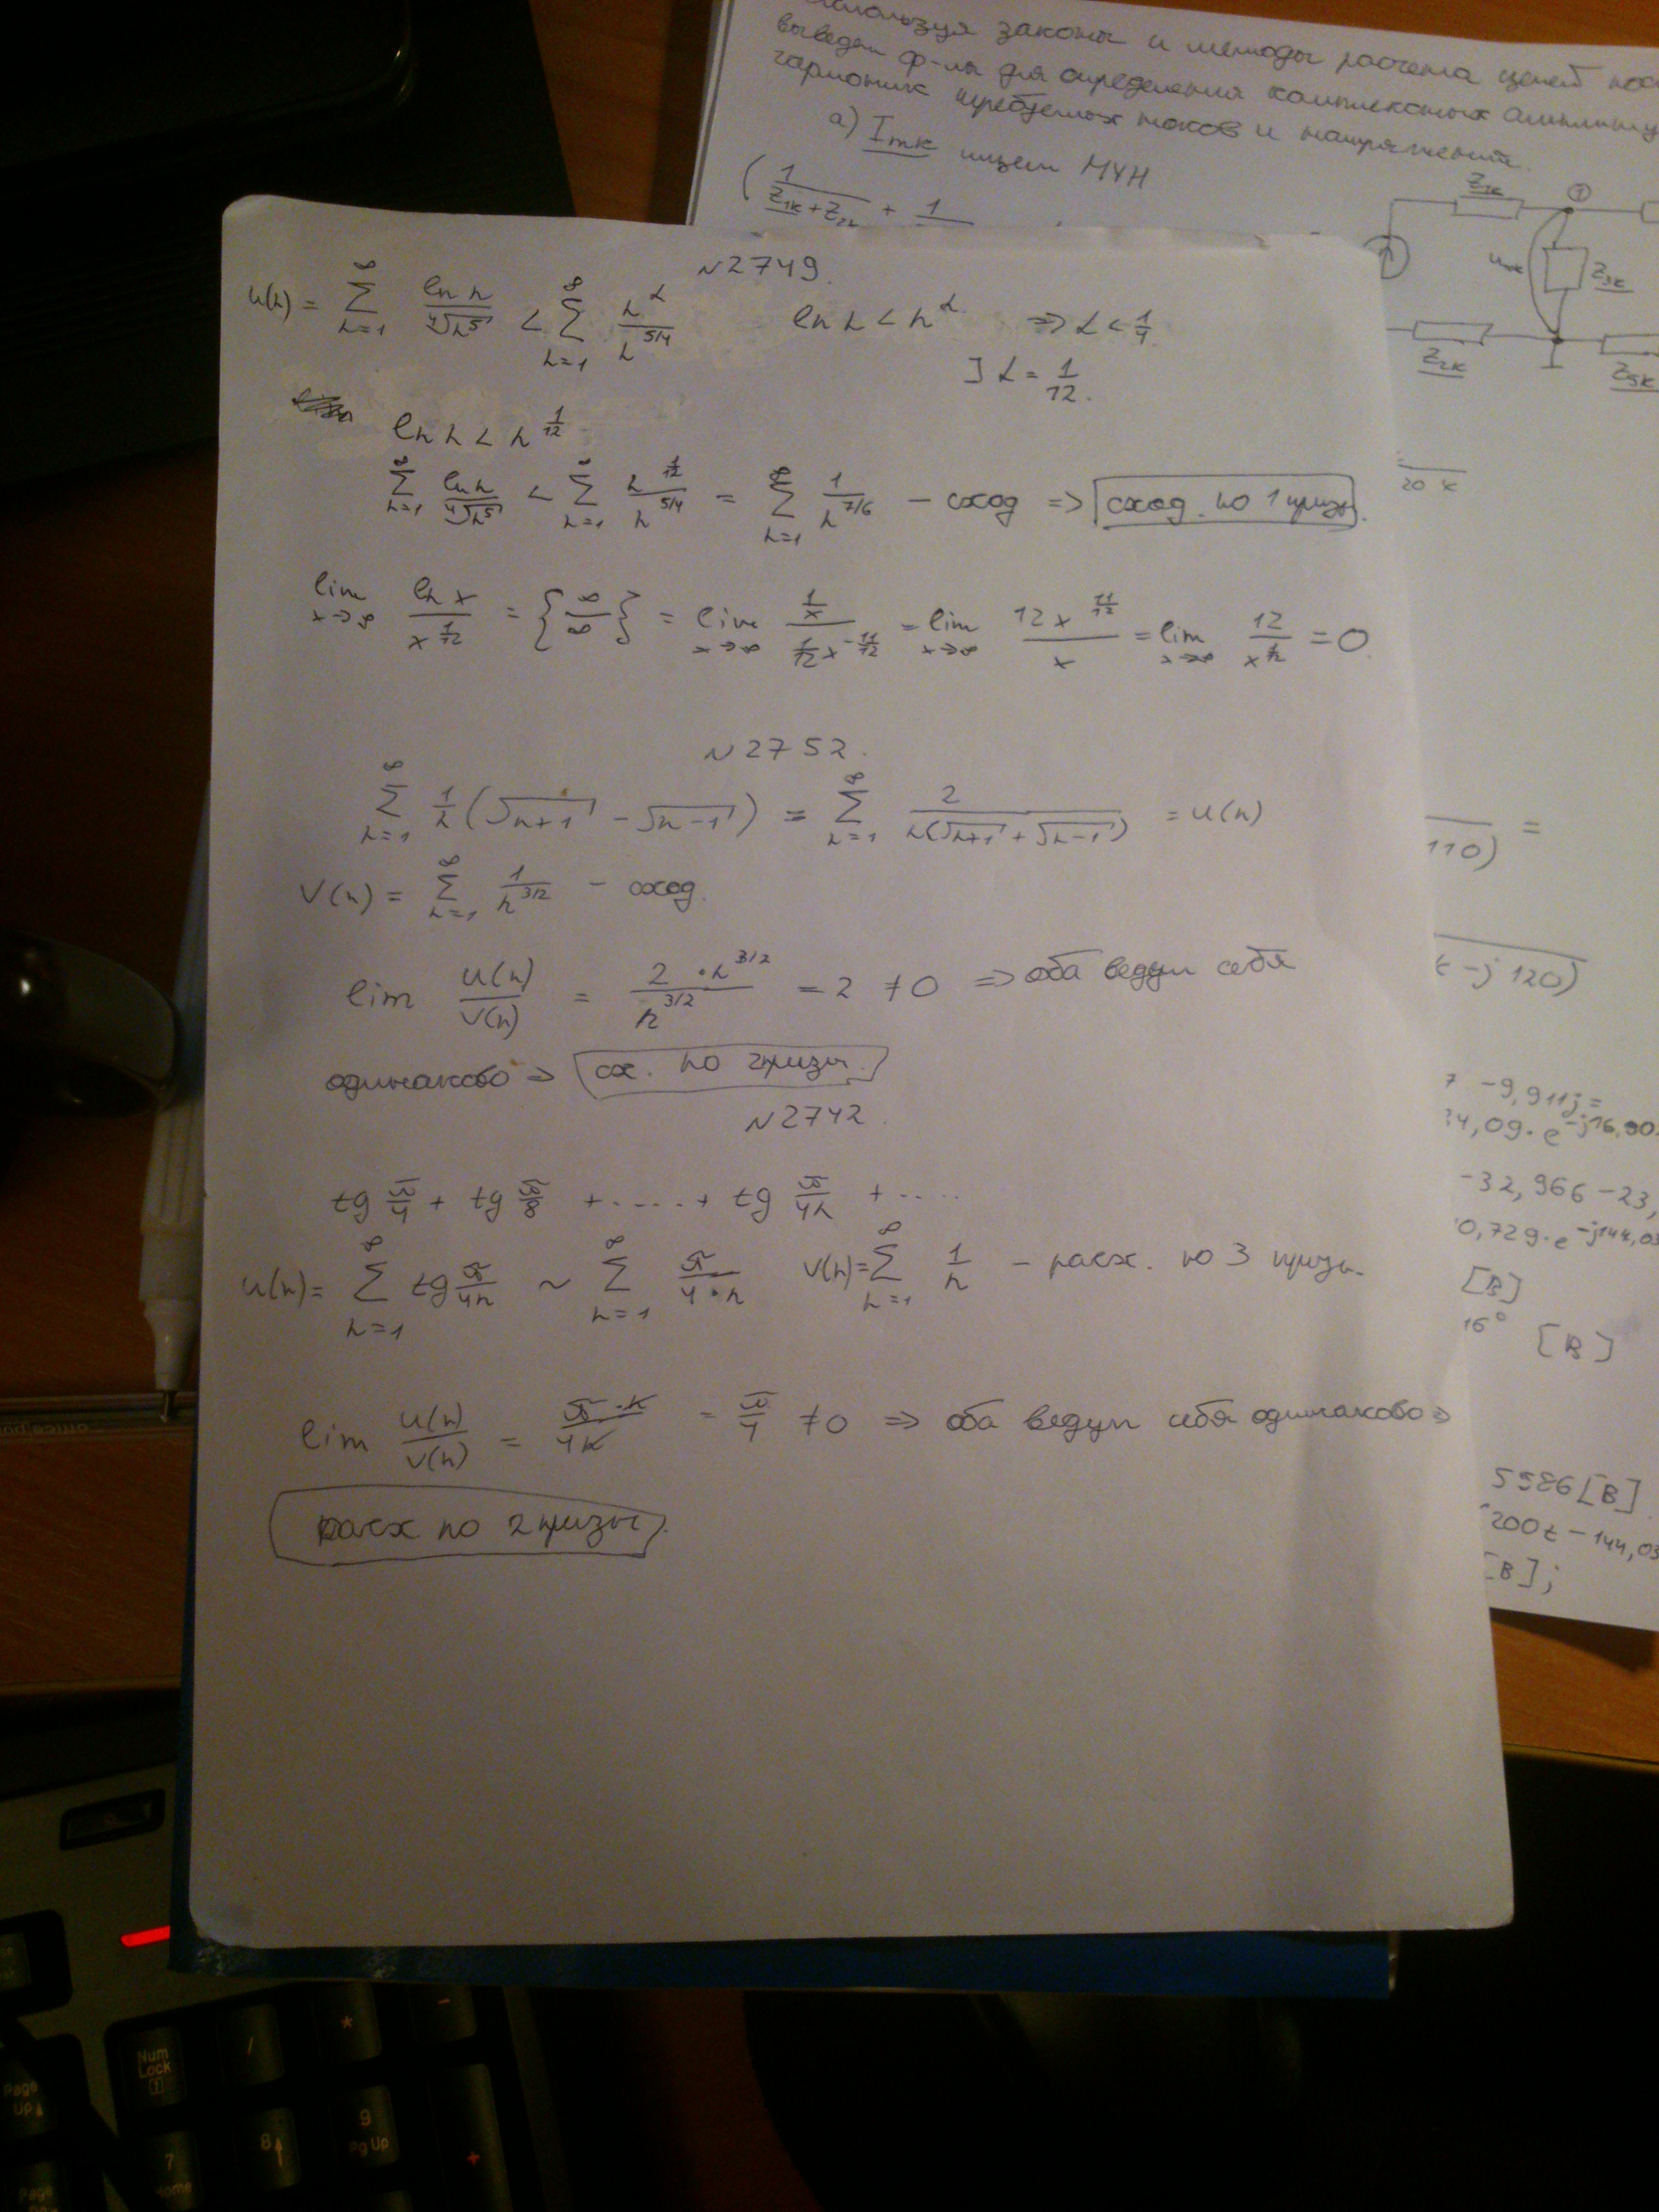 законы и методы расчета цепей
выведем ф-лы для определения комплексных
гармоник требуемых токов и напряжений.
а) Imk ищем МУН
( 1/(Z1k+Z2k) + 1
Z1k ①
Z3k
Z2k Z5k
N2749.
u(n) = ∑_{n=1}^{∞} ln n / ∜n⁵ < ∑_{n=1}^{∞} n^α / n^{5/4} ln n < n^α. => α < 1/4.
] α = 1/12.
ln n < n^{1/12}
∑_{n=1}^{∞} ln n / ∜n⁵ < ∑_{n=1}^{∞} n^{1/12} / n^{5/4} = ∑_{n=1}^{∞} 1 / n^{7/6} - сход => сход. по 1 призн.
lim_{x→∞} ln x / x^{1/12} = {∞/∞} = lim_{x→∞} (1/x) / (1/12 x^{-11/12}) = lim_{x→∞} 12x^{11/12} / x = lim_{x→∞} 12 / x^{1/12} = 0.
N2752.
∑_{n=1}^{∞} 1/n (√(n+1) - √(n-1)) = ∑_{n=1}^{∞} 2 / (n(√(n+1) + √(n-1))) = u(n)
V(n) = ∑_{n=1}^{∞} 1 / n^{3/2} - сход.
lim u(n)/v(n) = 2·n^{3/2} / n^{3/2} = 2 ≠ 0 => оба ведут себя
одинаково => сх. по 2 призн.
N2742.
tg π/4 + tg π/8 + ..... + tg π/4n + ....
u(n) = ∑_{n=1}^{∞} tg π/4n ~ ∑_{n=1}^{∞} π/(4·n) V(n) = ∑_{n=1}^{∞} 1/n - расх. по 3 призн.
lim u(n)/v(n) = π·n / 4n = π/4 ≠ 0 => оба ведут себя одинаково =>
расх по 2 призн.
110) =
-j120)
-9,911j=
4,09·e^{-j16,90
-32,966-23,
0,729·e^{-j144,03
[В]
16° [В]
5586[В]
200t-144,03
[В];
Num
Lock
/
*
-
Page
Up
7
Home
8
9
Pg Up
+
Page